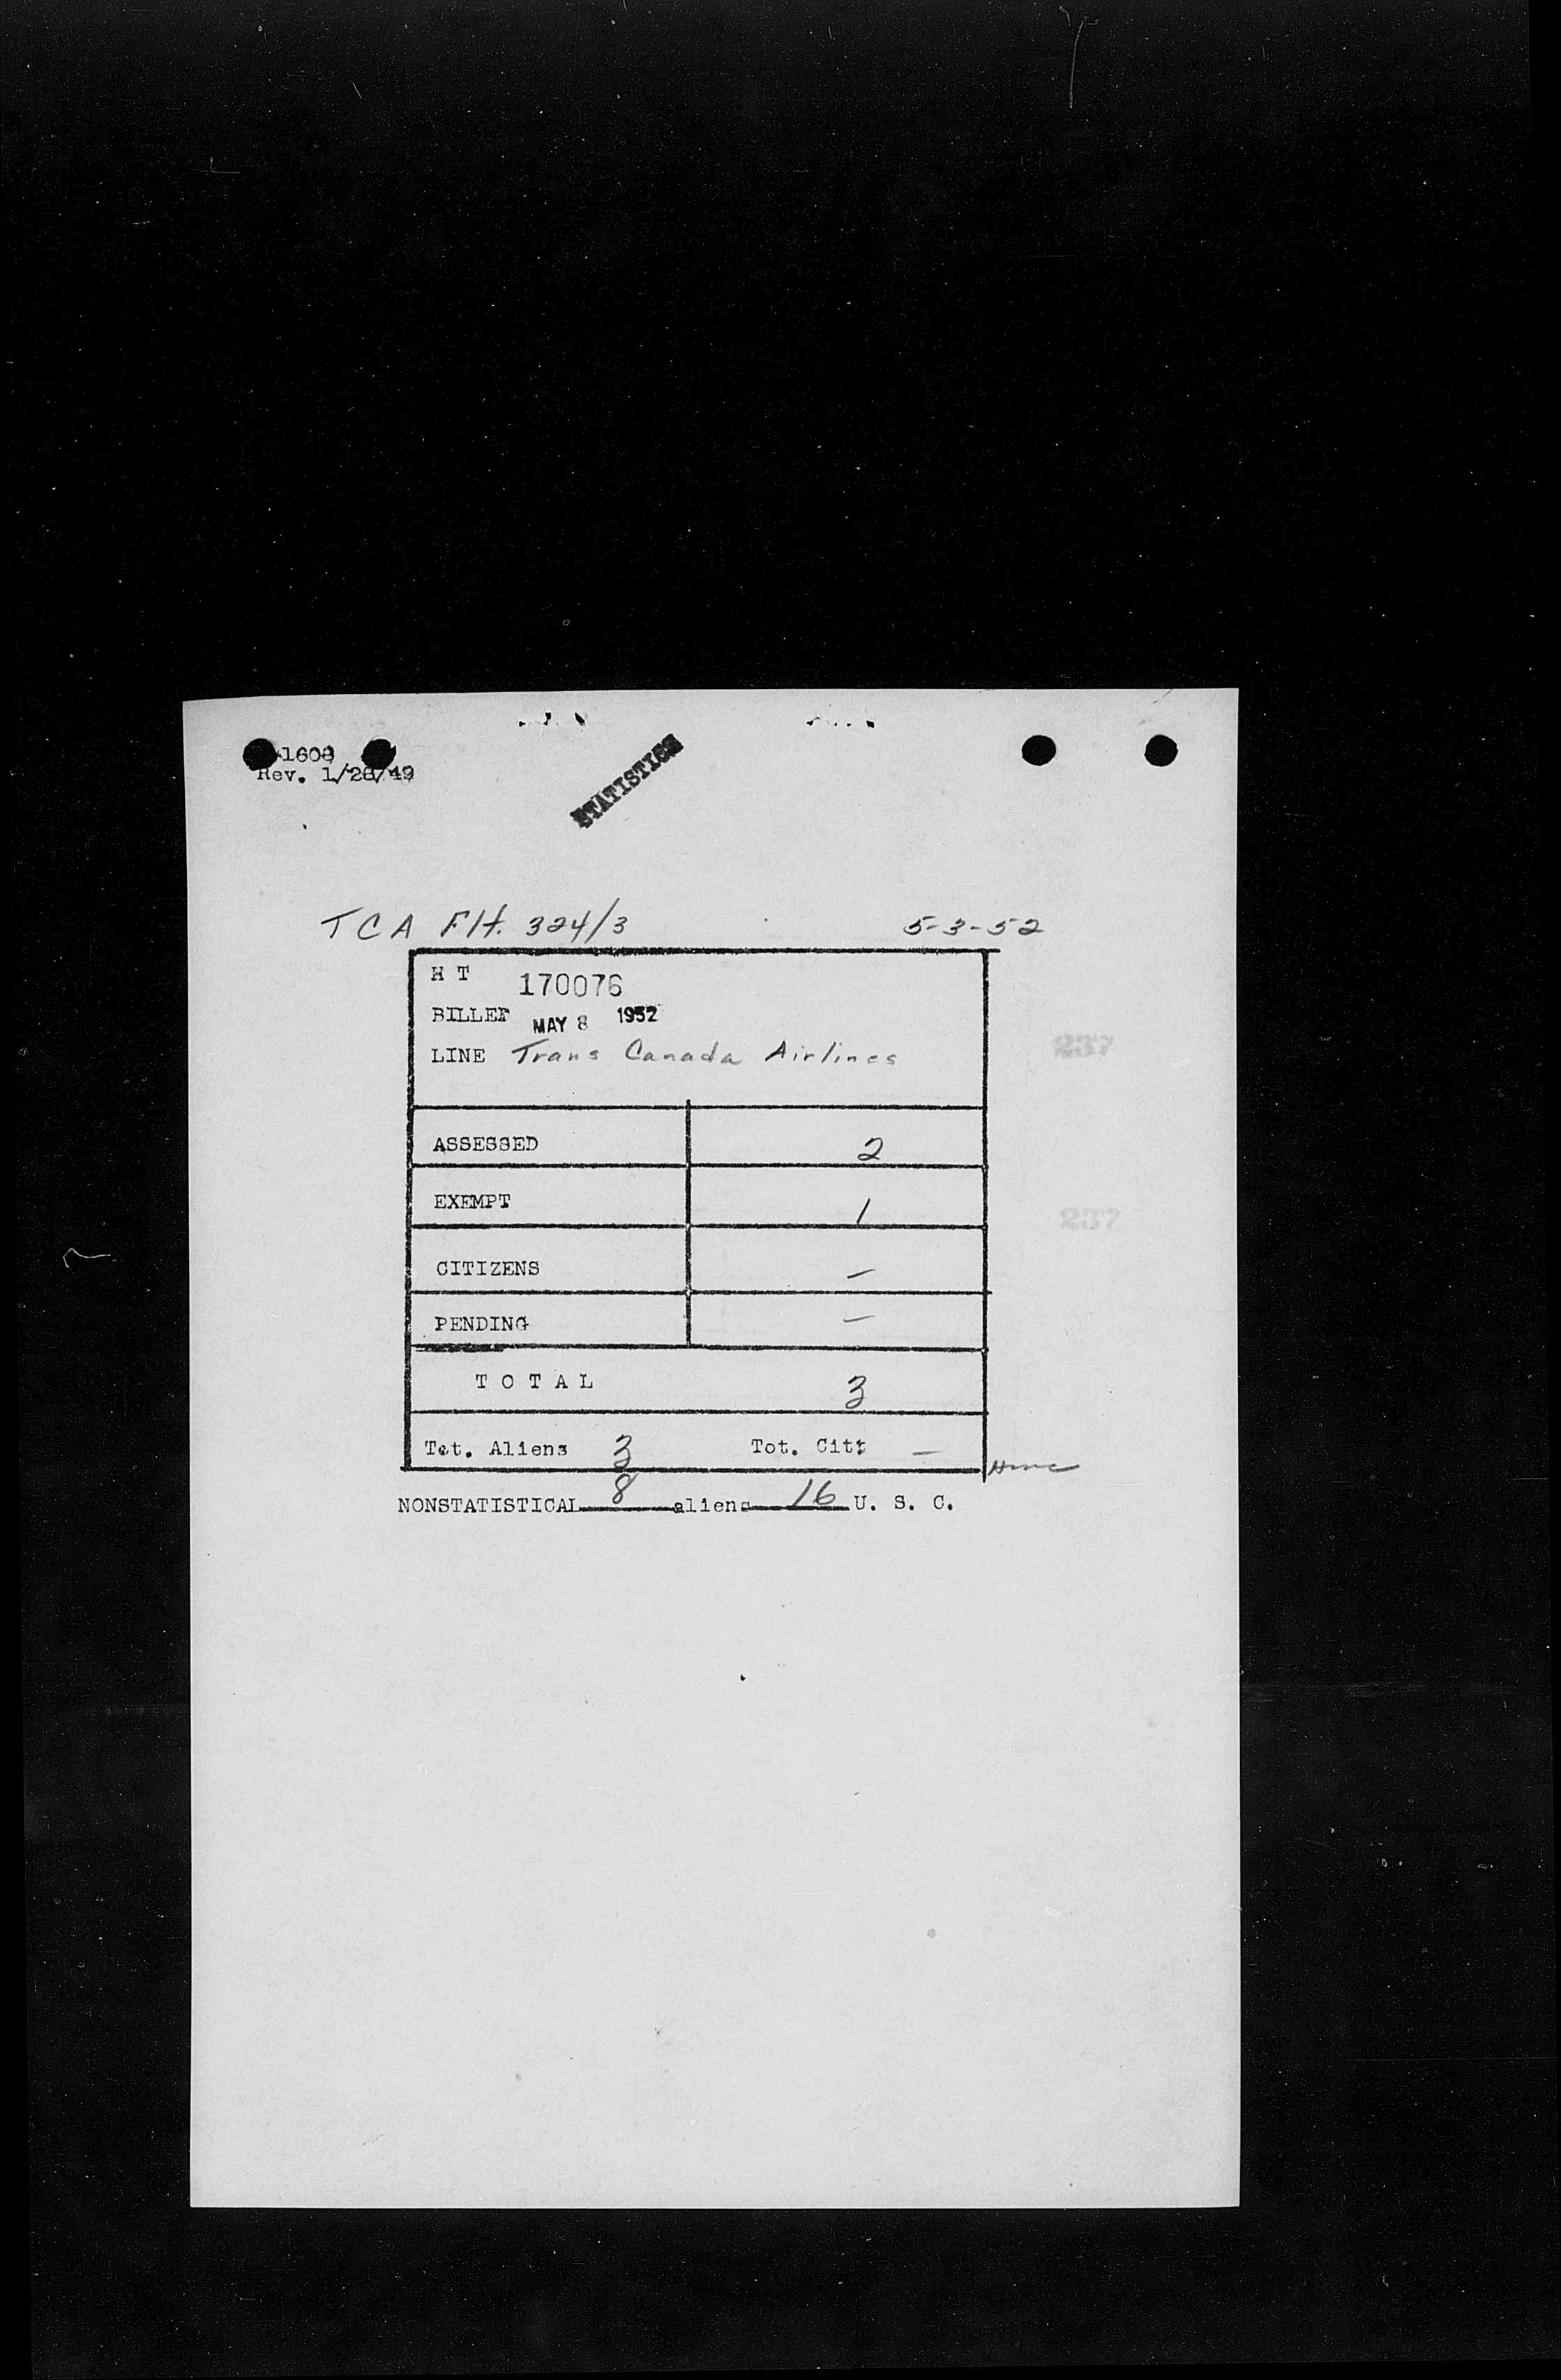 1608
Rev. 1/28/49
STATISTICS
TCA Flt. 324/3 5-3-52
H T 170076
BILLED MAY 8 1952
LINE Trans Canada Airlines
237
ASSESSED 2
EXEMPT 1
237
CITIZENS –
PENDING –
T O T A L 3
Tot. Aliens 3 Tot. Citz –
NONSTATISTICAL 8 aliens 16 U. S. C.